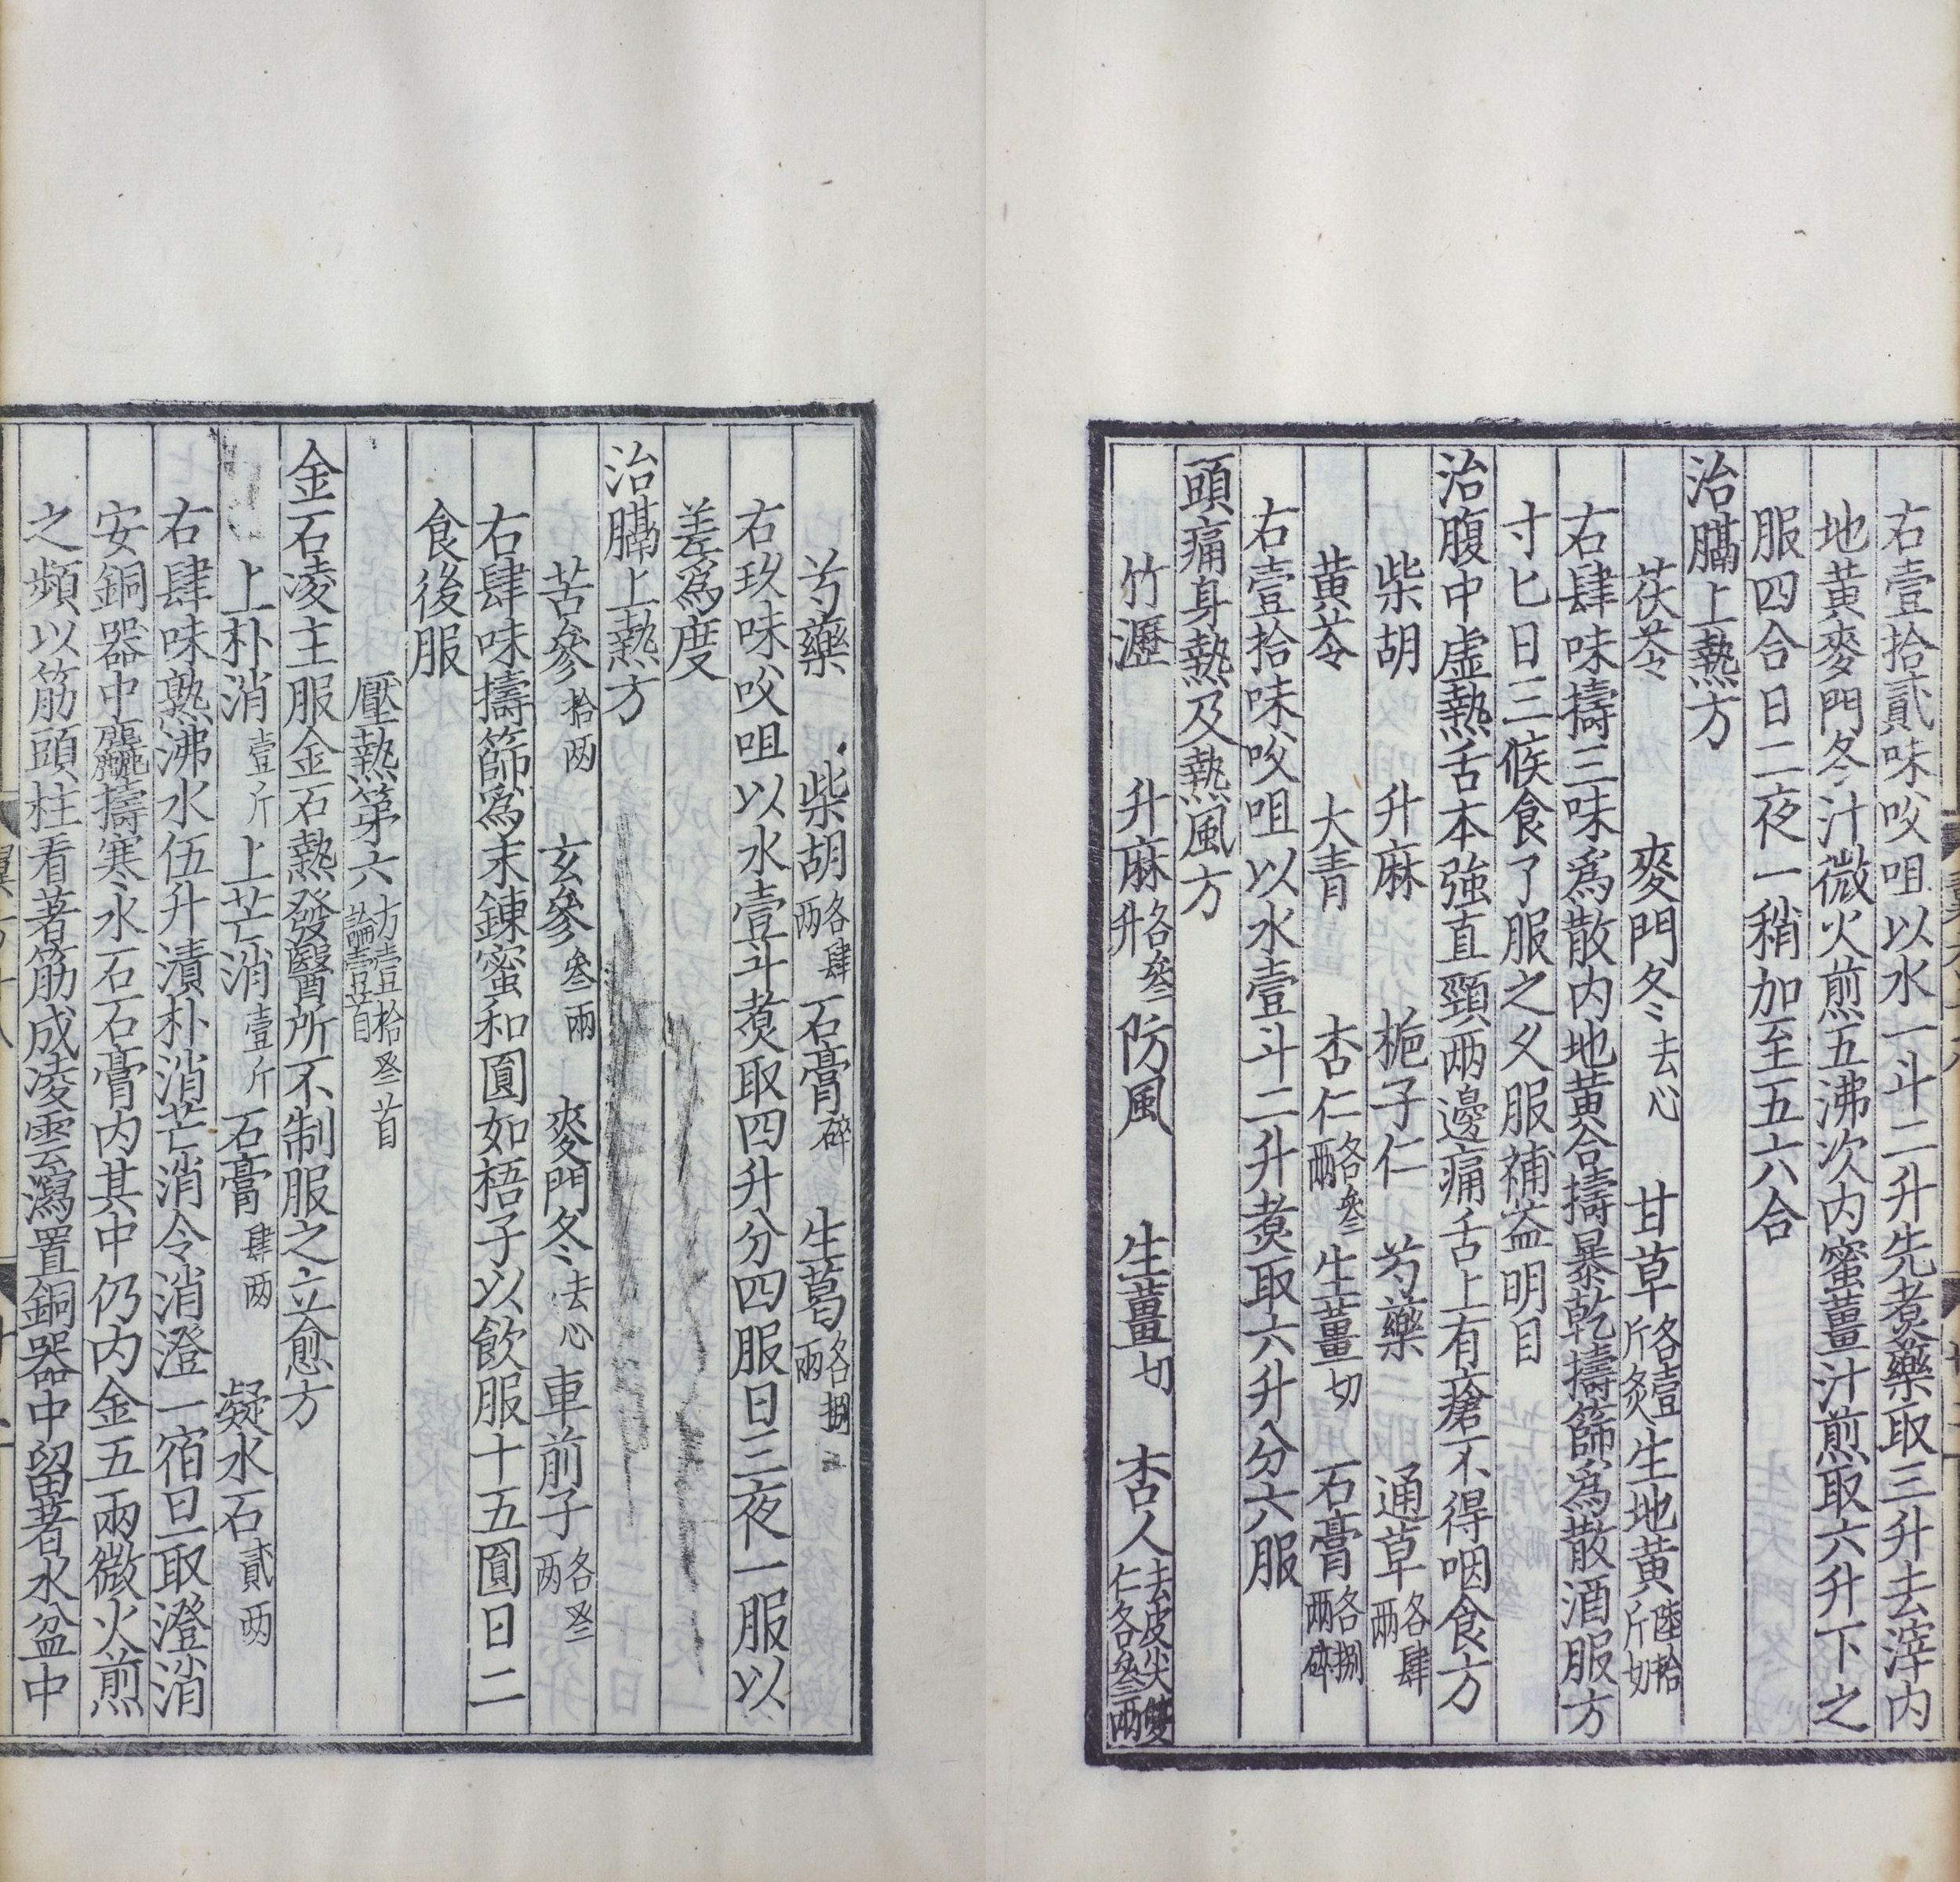 右壹拾貳味㕮咀以水一斗二升先煮藥取三升去滓内
地黃麥門冬汁微火煎五沸次内蜜薑汁煎取六升下之
服四合日二夜一稍加至五六合
治膈上熱方
茯苓 麥門冬去心 甘草各壹斤炙 生地黃陸拾斤切
右肆味擣三味爲散内地黃合擣暴乾擣篩爲散酒服方
寸匕日三候食了服之久服補益明目
治腹中虛熱舌本強直頸兩邊痛舌上有瘡不得咽食方
柴胡 升麻 梔子仁 芍藥 通草各肆兩
黃芩 大青 杏仁各叄兩 生薑切 石膏各捌兩碎
右壹拾味㕮咀以水壹斗二升煮取六升分六服
頭痛身熱及熱風方
竹瀝 升麻各叄升 防風 生薑切 杏人去皮尖雙仁各叄兩
芍藥 柴胡各肆兩 石膏碎 生葛各捌兩
右玖味㕮咀以水壹斗煮取四升分四服日三夜一服以
差爲度
治膈上熱方
苦參拾兩 玄參叄兩 麥門冬去心 車前子各叄兩
右肆味擣篩爲末鍊蜜和圓如梧子以飲服十五圓日二
食後服
壓熱第六方壹拾叄首論壹首
金石凌主服金石熱發醫所不制服之立愈方
上朴消壹斤 上芒消壹斤 石膏肆兩 凝水石貳兩
右肆味熟沸水伍升漬朴消芒消令消澄一宿旦取澄消
安銅器中麤擣寒水石石膏内其中仍内金五兩微火煎
之頻以筋頭柱看著筋成凌雲瀉置銅器中留著水盆中